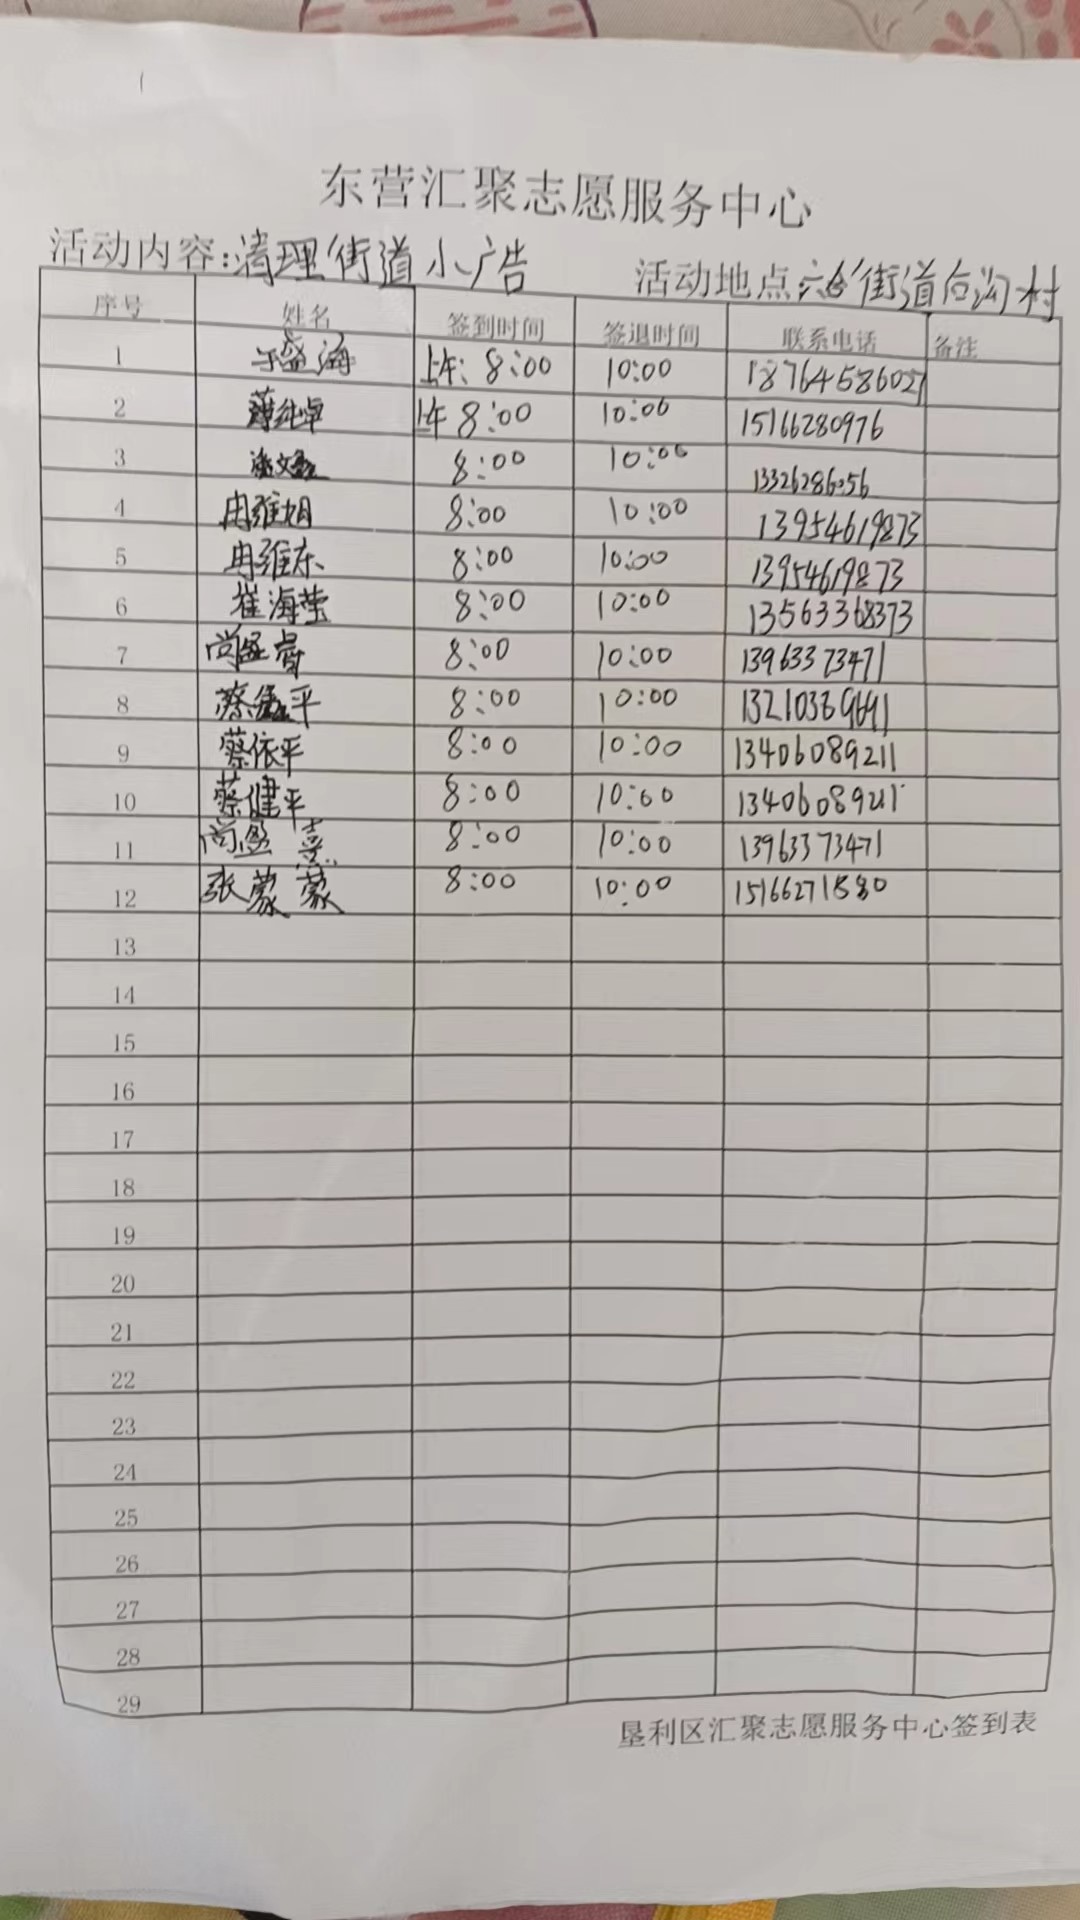 东营汇聚志愿服务中心
活动内容:清理街道小广告 活动地点 六合街道后沟村
序号 姓名 签到时间 签退时间 联系电话 备注
1 于盛海 上午:8:00 10:00 18764586027
2 薄纯卓 上午8:00 10:00 15166280976
3 8:00 10:00 13326286056
4 冉维旭 8:00 10:00 13954619873
5 冉维东 8:00 10:00 13954619873
6 崔海莹 8:00 10:00 13563368373
7 尚盈睿 8:00 10:00 13963373471
8 蔡 平 8:00 10:00
9 蔡依平 8:00 10:00 13406089211
10 蔡健平 8:00 10:00 13406089211
11 尚盈熹 8:00 10:00 13963373471
12 张蒙蒙 8:00 10:00 15166271580
13
14
15
16
17
18
19
20
21
22
23
24
25
26
27
28
29
垦利区汇聚志愿服务中心签到表